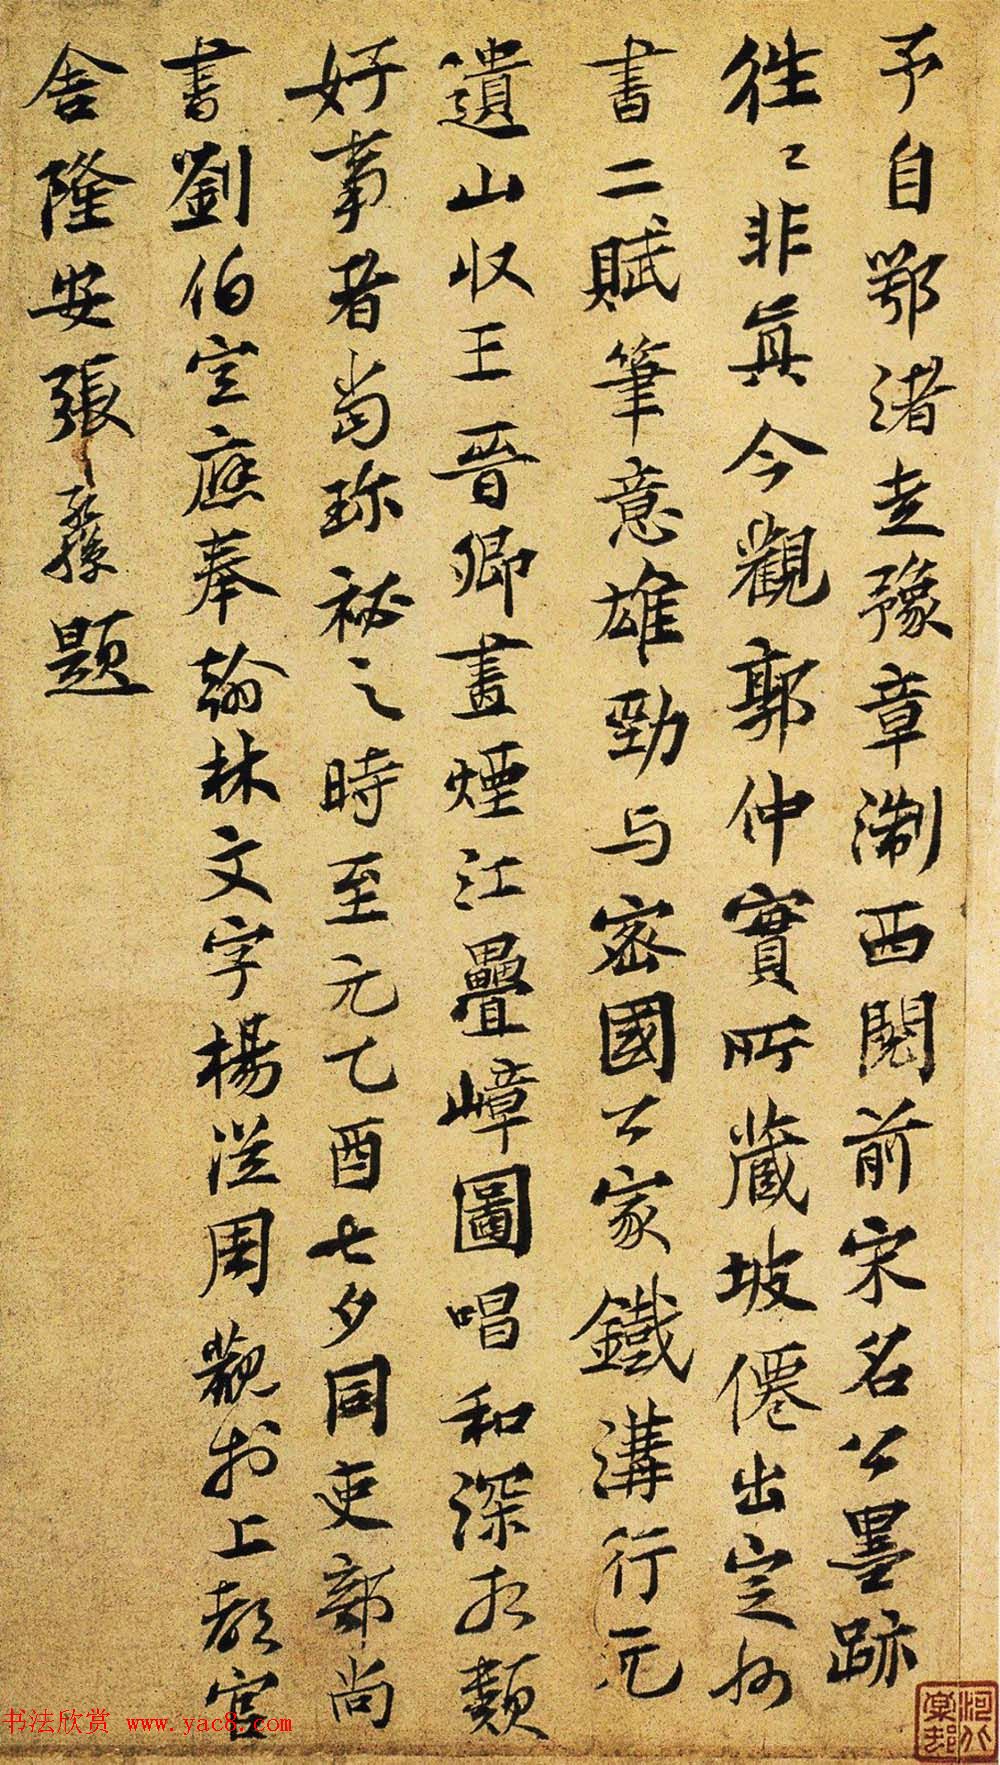 予自鄂渚走豫章淛西閱前宋名公墨跡
往々非真今觀郭仲實所藏坡僊出定州
書二賦筆意雄勁与密國公家鐵溝行元
遺山收王晉卿畫煙江疊嶂圖唱和深相類
好事者當珎祕之時至元乙酉七夕同吏部尚
書劉伯宣應奉翰林文字楊從周觀於上都官
舍隆安張孔孫題
书法欣赏 www.yac8.com